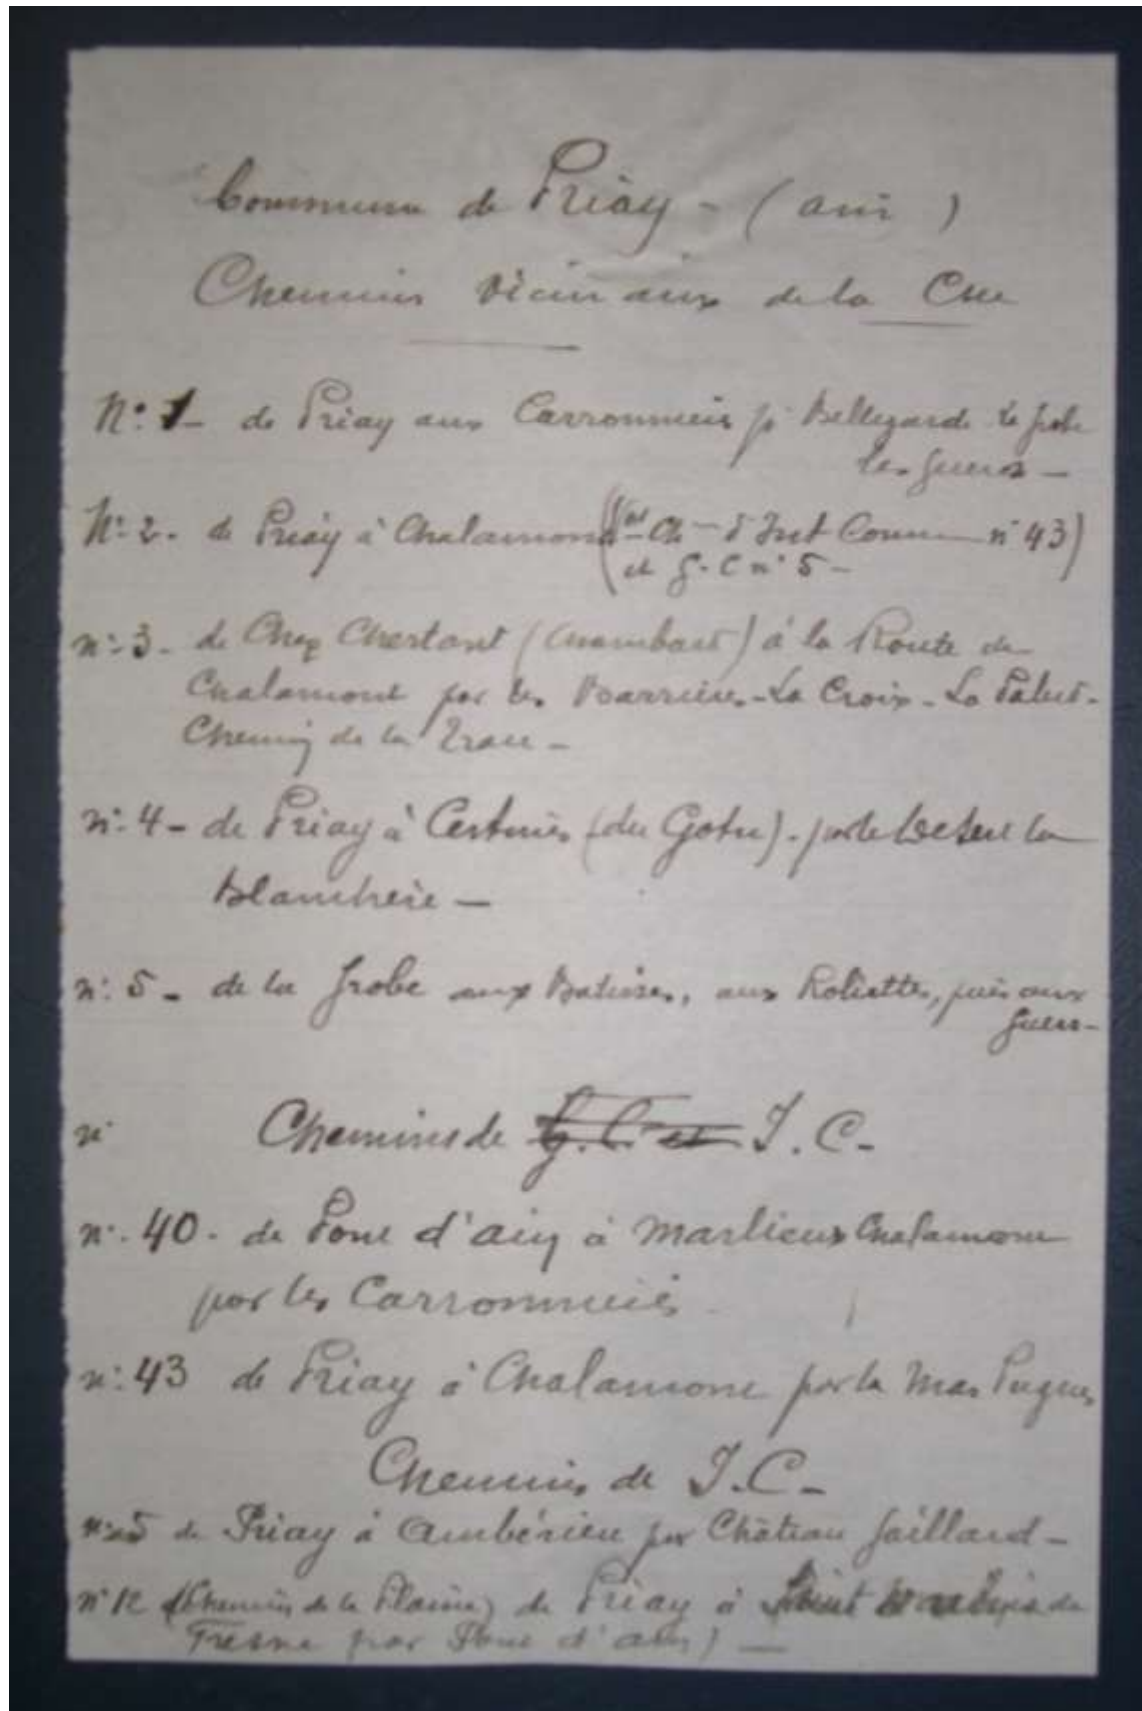 Commune de Priay - (Ain)
Chemins vicinaux de la Cne
N° 1 - de Priay aux Carronnières p. Bellegarde
les
N° 2. de Priay à Chalamont (Ch - d'Int Commun n° 43)
et G. C n° 5 -
n° 3 - de Chez Chertant () à la Route de
Chalamont par les Barrières - La Croix - La Palud -
Chemin de la
n° 4 - de Priay à Certines (du Gotu). par le la
Blanchère -
n° 5 - de la Grobe aux Batisses, aux Roliettes, puis aux
n° Chemins de G. C. et I. C -
n° 40 - de Pont d'Ain à Marlieux Chalamont
par les Carronnières
n° 43 de Priay à Chalamont par le Mas Pugues
Chemins de I. C -
n° 5 de Priay à Ambérieu par Château Gaillard -
n° 12 (Chemin de la Plaine) de Priay à Saint de
Fresne par Pont d'Ain) -